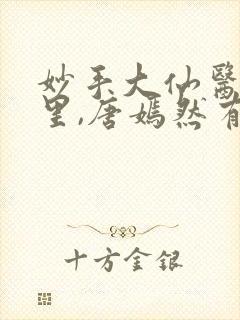 妙手大仙醫
里,唐嫣然有
十方金银